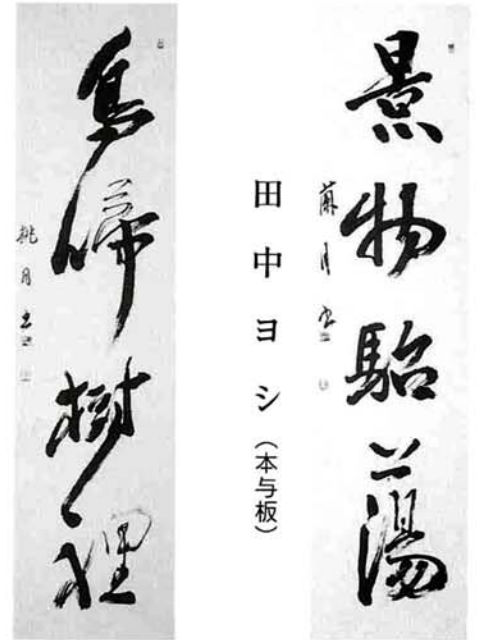 景物駘蕩
田中ヨシ（本与板）
鳥啼樹裡
桃月書